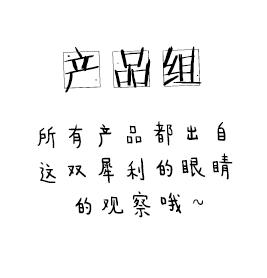 产品组
所有产品都出自
这双犀利的眼睛
的观察哦～